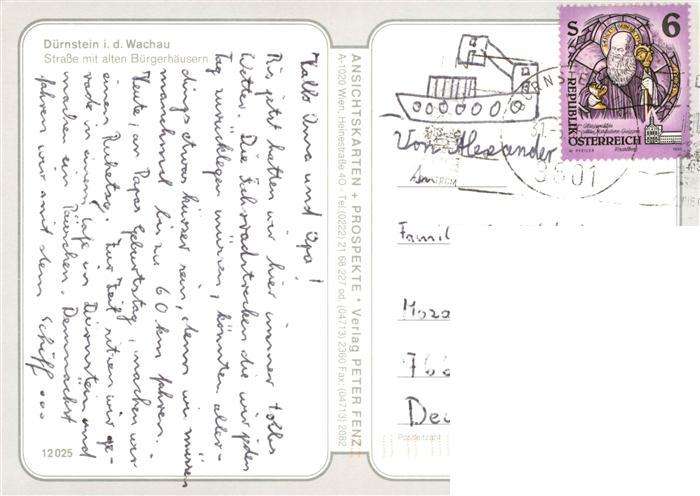 Dürnstein i. d. Wachau
Straße mit alten Bürgerhäusern
Hallo Oma und Opa!
Bis jetzt hatten wir hier immer tolles
Wetter. Die Fahrradstrecken die wir jeden
Tag zurücklegen müssen, könnten aller-
dings etwas kürzer sein, denn wir müssen
manchmal bis zu 60 km fahren.
Heute, an Papas Geburtstag, machen wir
einen Ruhetag. Zur Zeit sitzen wir ge-
rade in einem Café in Dürnstein und
machen ein Päuschen. Demnächst
fahren wir mit dem Schiff...
12025
ANSICHTSKARTEN + PROSPEKTE * Verlag PETER FENZ
A-1020 Wien, Heinestraße 40 - Tel. (0222) 21 68 227 od. (04713) 2360 Fax: (04713) 2082
S 6
REPUBLIK
ÖSTERREICH
3601
Von Alexander
An
Famil
Moza
766
Deu
Postleitzahl